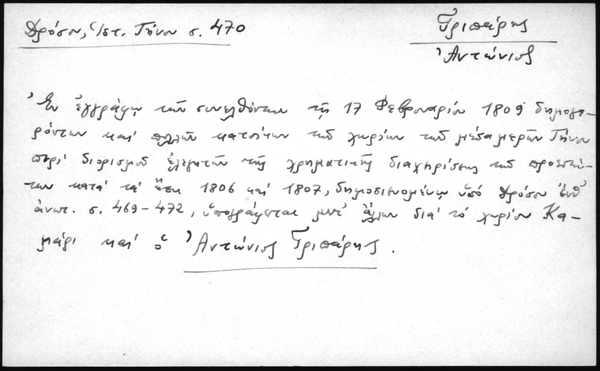 Δρόσου, Ἱστ. Τήνου σ. 470
Γριπάρης
Ἀντώνιος
Ἐν ἐγγράφῳ τῶν συνελθόντων τῇ 17 Φεβρουαρίου 1809 δημογε-
ρόντων καὶ πολλῶν κατοίκων τῶν χωρίων τῶν μέσα μερῶν Τήνου
περὶ διορισμοῦ ἐλεγκτῶν τῆς χρηματικῆς διαχειρίσεως τῶν προεστώ-
των κατὰ τὰ ἔτη 1806 καὶ 1807, δημοσιευομένῳ ὑπὸ Δρόσου ἔνθ'
ἀνωτ. σ. 469-472, ὑπογράφεται μετ' ἄλλων διὰ τὸ χωρίον Κα-
μάρι καὶ ὁ Ἀντώνιος Γριπάρης.